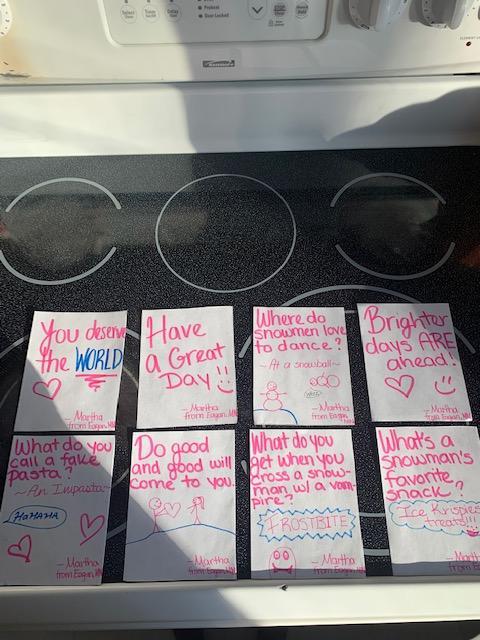 Kenmore
You deserve
the WORLD
- Martha
from Eagan, MN
Have
a Great
Day
- Martha
from Eagan, MN
Where do
snowmen love
to dance?
~ At a snowball ~
- Martha
from Eagan, MN
Brighter
days ARE
ahead!
- Martha
from Eagan, MN
What do you
call a fake
pasta?
~ An Impasta ~
HaHAHA
- Martha
from Eagan, MN
Do good
and good will
come to you.
- Martha
from Eagan, MN
What do you
get when you
cross a snow-
man w/ a vam-
pire?
FROSTBITE
- Martha
from Eagan, MN
What's a
snowman's
favorite
snack?
Ice Krispies
treats!!!
- Martha
from Eagan, MN